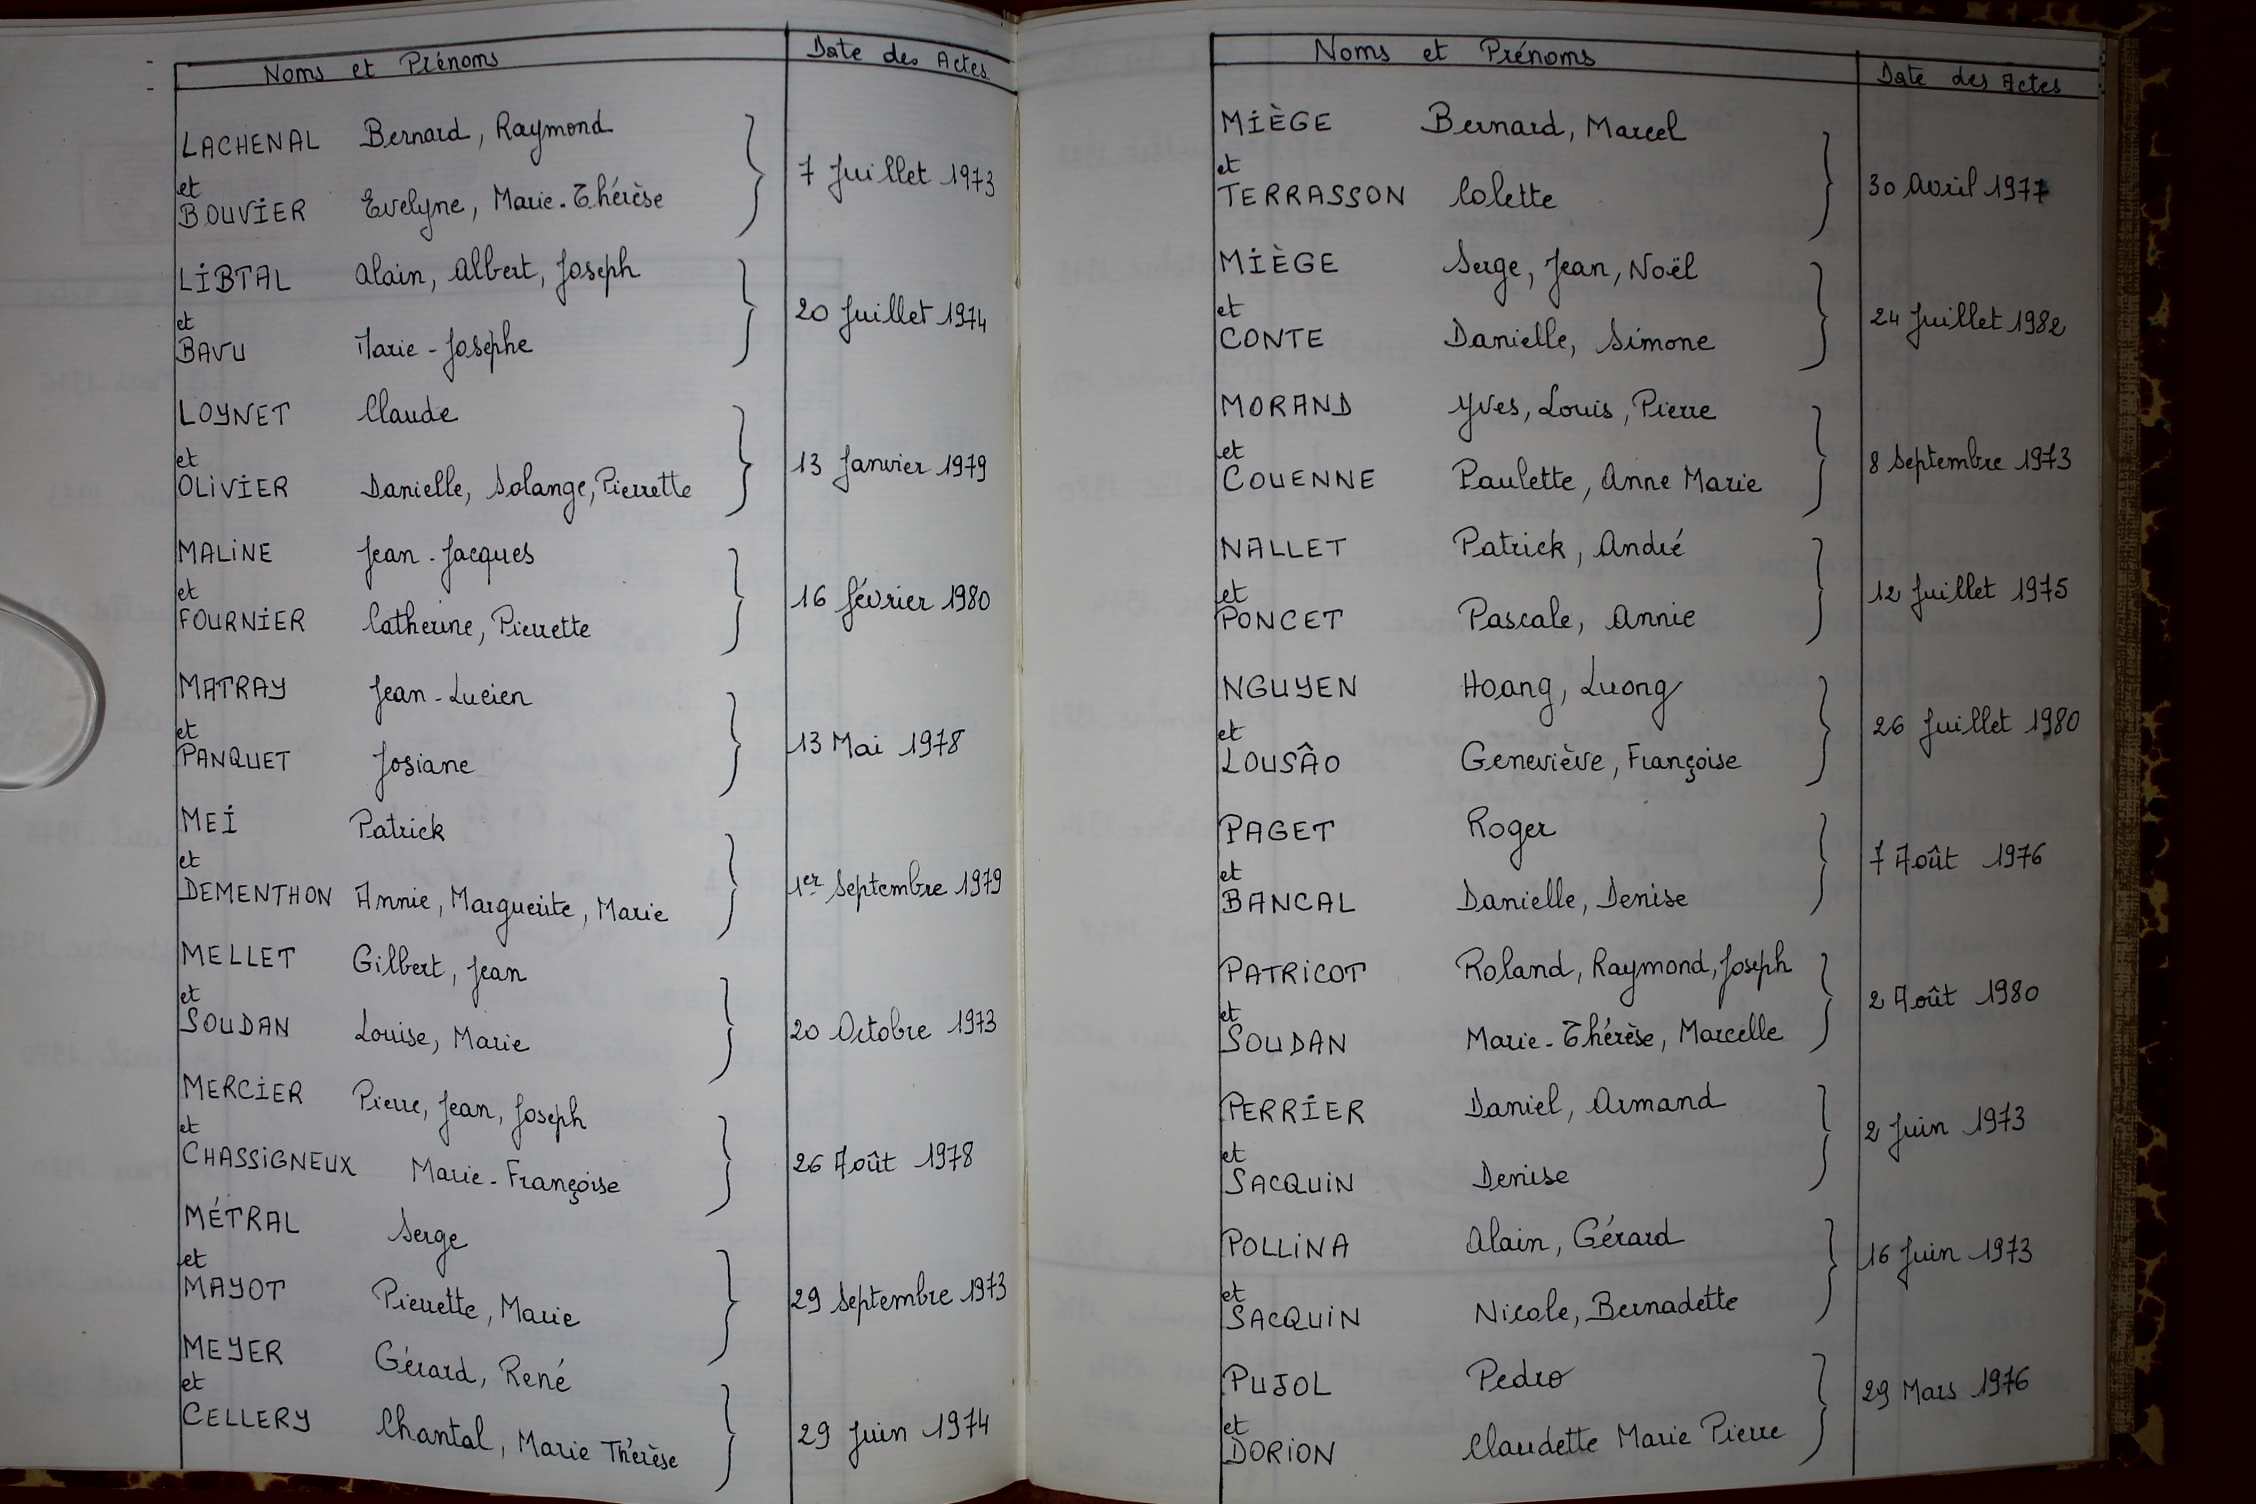 Noms et Prénoms Date des Actes
LACHENAL Bernard, Raymond
et
BOUVIER Evelyne, Marie-Thérèse
7 Juillet 1973
LIBTAL Alain, Albert, Joseph
et
BAVU Marie-Josèphe
20 Juillet 1974
LOYNET Claude
et
OLIVIER Danielle, Solange, Pierrette
13 Janvier 1979
MALINE Jean-Jacques
et
FOURNIER Catherine, Pierrette
16 février 1980
MATRAY Jean-Lucien
et
PANQUET Josiane
13 Mai 1978
MEI Patrick
et
DEMENTHON Annie, Marguerite, Marie
1er Septembre 1979
MELLET Gilbert, Jean
et
SOUDAN Louise, Marie
20 Octobre 1973
MERCIER Pierre, Jean, Joseph
et
CHASSIGNEUX Marie-Françoise
26 Août 1978
MÉTRAL Serge
et
MAYOT Pierrette, Marie
29 Septembre 1973
MEYER Gérard, René
et
CELLERY Chantal, Marie Thérèse
29 Juin 1974
Noms et Prénoms Date des Actes
MIÈGE Bernard, Marcel
et
TERRASSON Colette
30 Avril 1977
MIÈGE Serge, Jean, Noël
et
CONTE Danielle, Simone
24 Juillet 1982
MORAND Yves, Louis, Pierre
et
COUENNE Paulette, Anne Marie
8 Septembre 1973
NALLET Patrick, André
et
PONCET Pascale, Annie
12 Juillet 1975
NGUYEN Hoang, Luong
et
LOUSÂO Geneviève, Françoise
26 Juillet 1980
PAGET Roger
et
BANCAL Danielle, Denise
7 Août 1976
PATRICOT Roland, Raymond, Joseph
et
SOUDAN Marie-Thérèse, Marcelle
2 Août 1980
PERRIER Daniel, Armand
et
SACQUIN Denise
2 Juin 1973
POLLINA Alain, Gérard
et
SACQUIN Nicole, Bernadette
16 Juin 1973
PUJOL Pedro
et
DORION Claudette Marie Pierre
29 Mars 1976